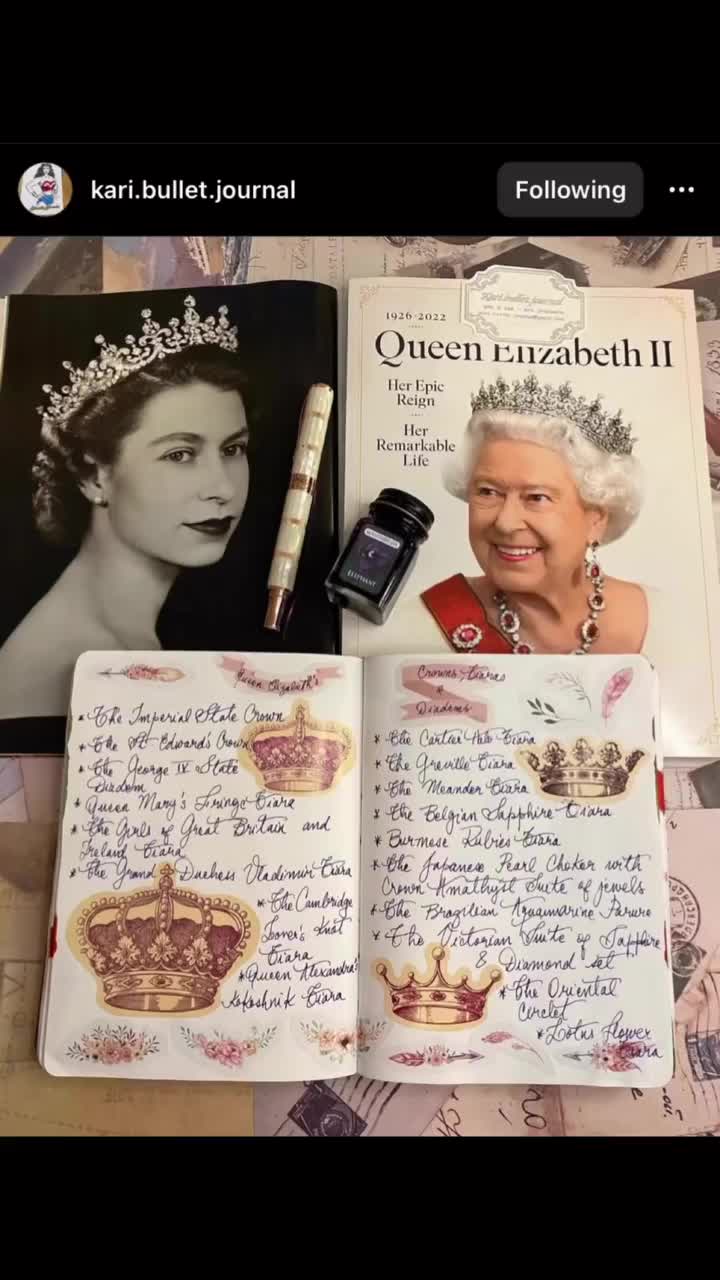 kari.bullet.journal
Following
Kari.bullet.journal
1926-2022
Queen Elizabeth II
Her Epic
Reign
Her
Remarkable
Life
ELEPHANT
Queen Elizabeth's
* The Imperial State Crown
* The St Edward's Crown
* The George IV State
Diadem
* Queen Mary's Fringe Tiara
* The Girls of Great Britain and
Ireland Tiara
* The Grand Duchess Vladimir Tiara
* The Cambridge
Lover's Knot
Tiara
* Queen Alexandra's
Kokoshnik Tiara
Crowns, Tiaras
&
Diadems
* The Cartier Halo Tiara
* The Greville Tiara
* The Meander Tiara
* The Belgian Sapphire Tiara
* Burmese Rubies Tiara
* The Japanese Pearl Choker with
Crown Amathyst Suite of jewels
* The Brazilian Aquamarine Parure
* The Victorian Suite of Sapphire
& Diamond set
* The Oriental
Circlet
* Lotus Flower
Tiara